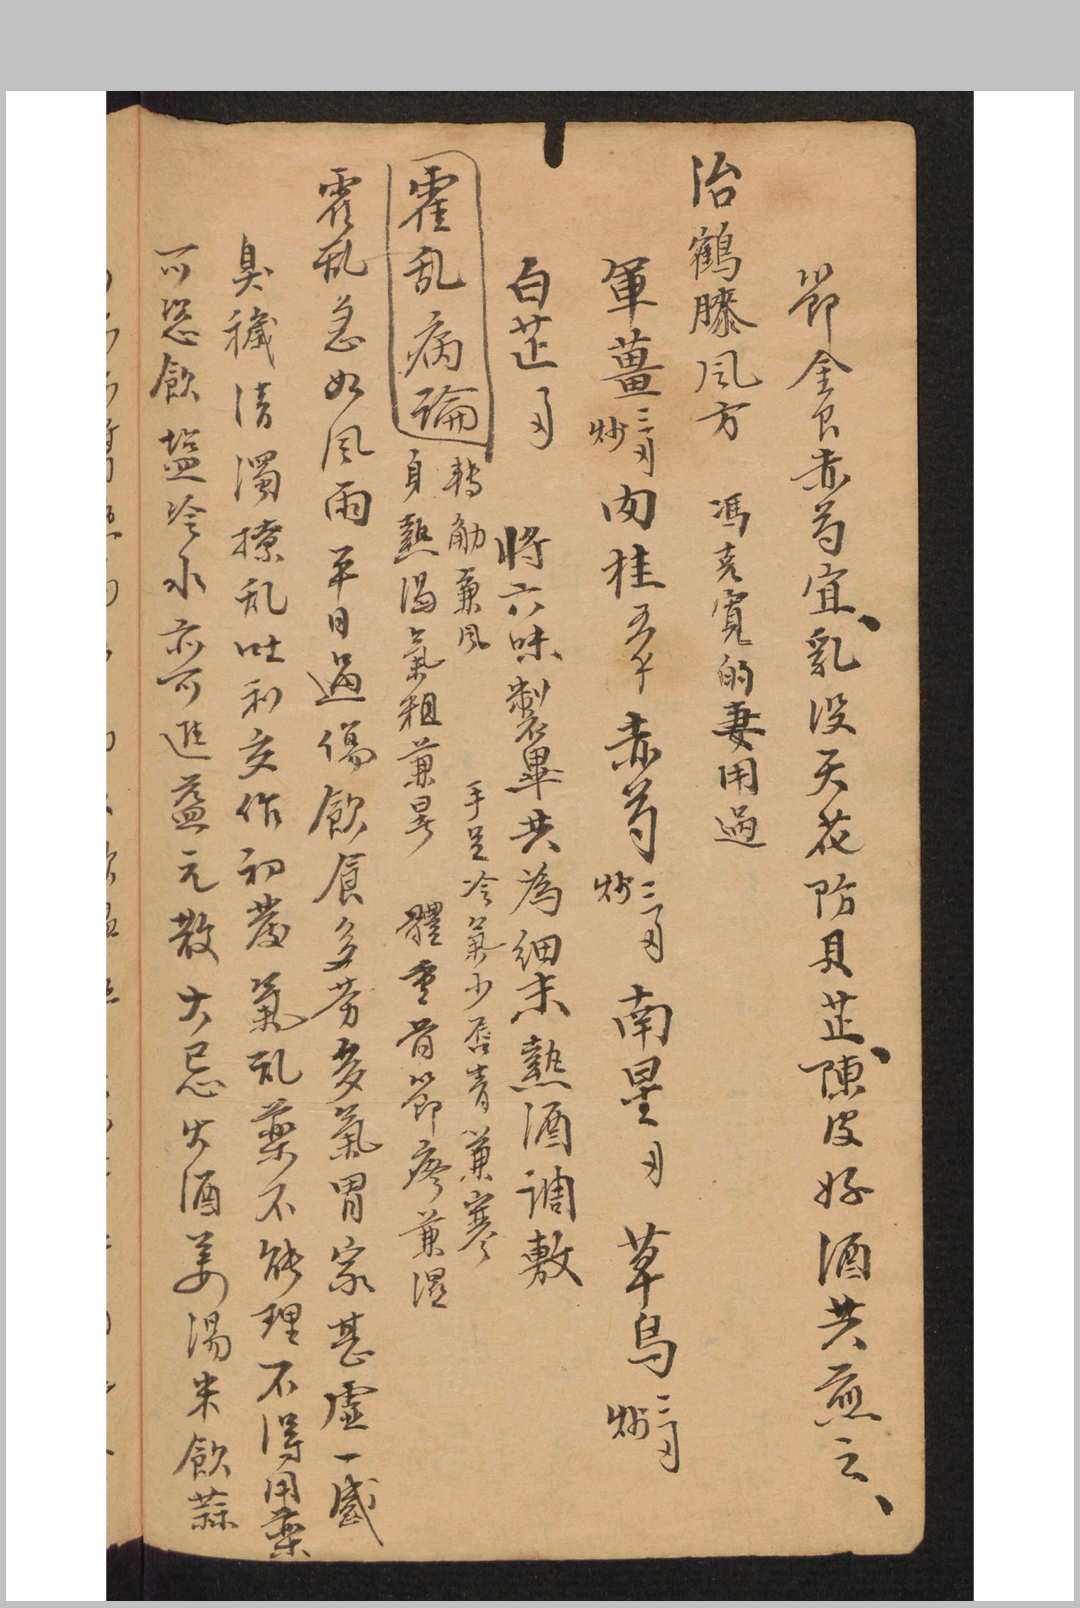 節金艮赤芍宜、乳没天花防貝芷、陳皮好酒共煎之、
治鶴膝风方 馮克寬的妻用過
軍薑三刄炒 肉桂五錢 赤芍三刄炒 南星一刄 草烏三刄炒
白芷一刄 將六味製畢共為細末熱酒調敷
霍乱病論
轉觔兼风 手足冷氣少唇青兼寒
身熱渴氣粗兼暑 體重骨節疼兼濕
霍乱急如风雨平日過傷飲食多劳多氣胃家甚虛一感
臭穢清濁撩乱吐利交作初發氣乱藥不能理不得用藥
可恣飲塩冷水亦可進益元散大忌火酒姜湯米飲蒜